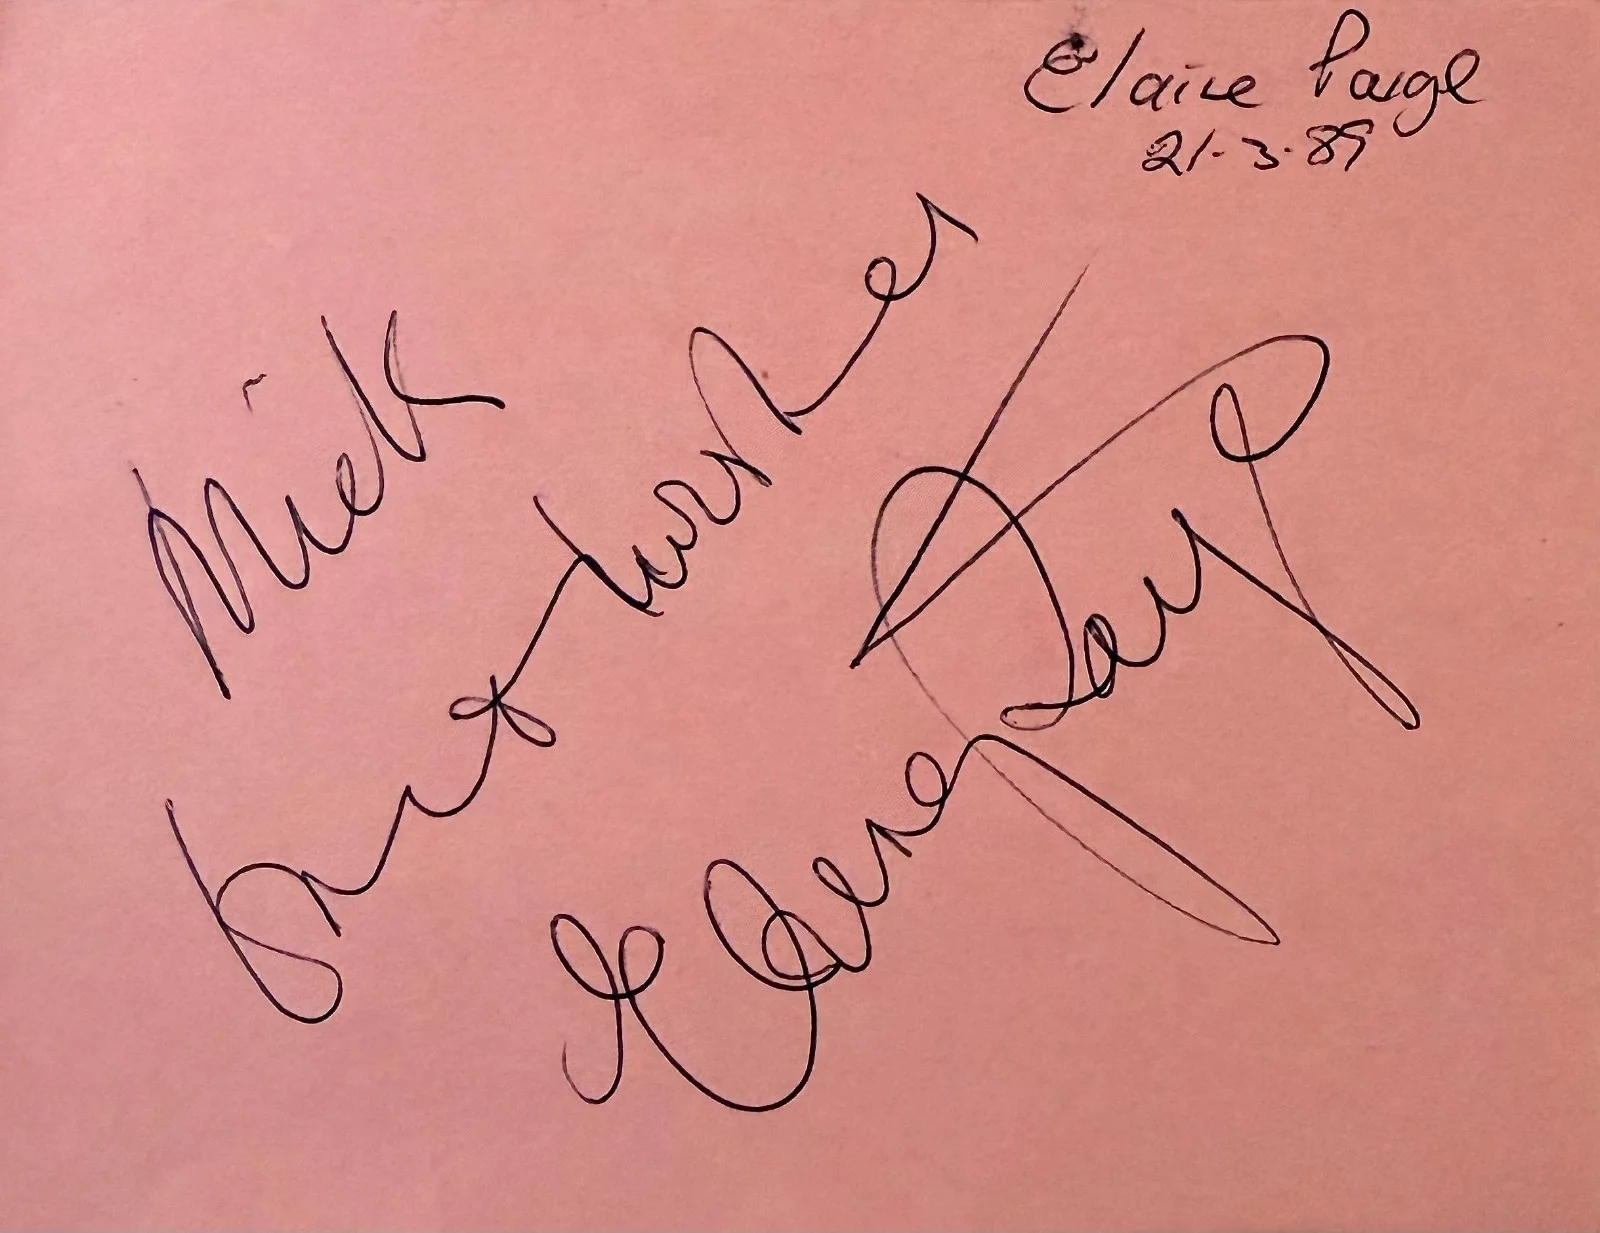 Elaine Paige
21.3.89
Mick
Best Wishes
Elaine Paige